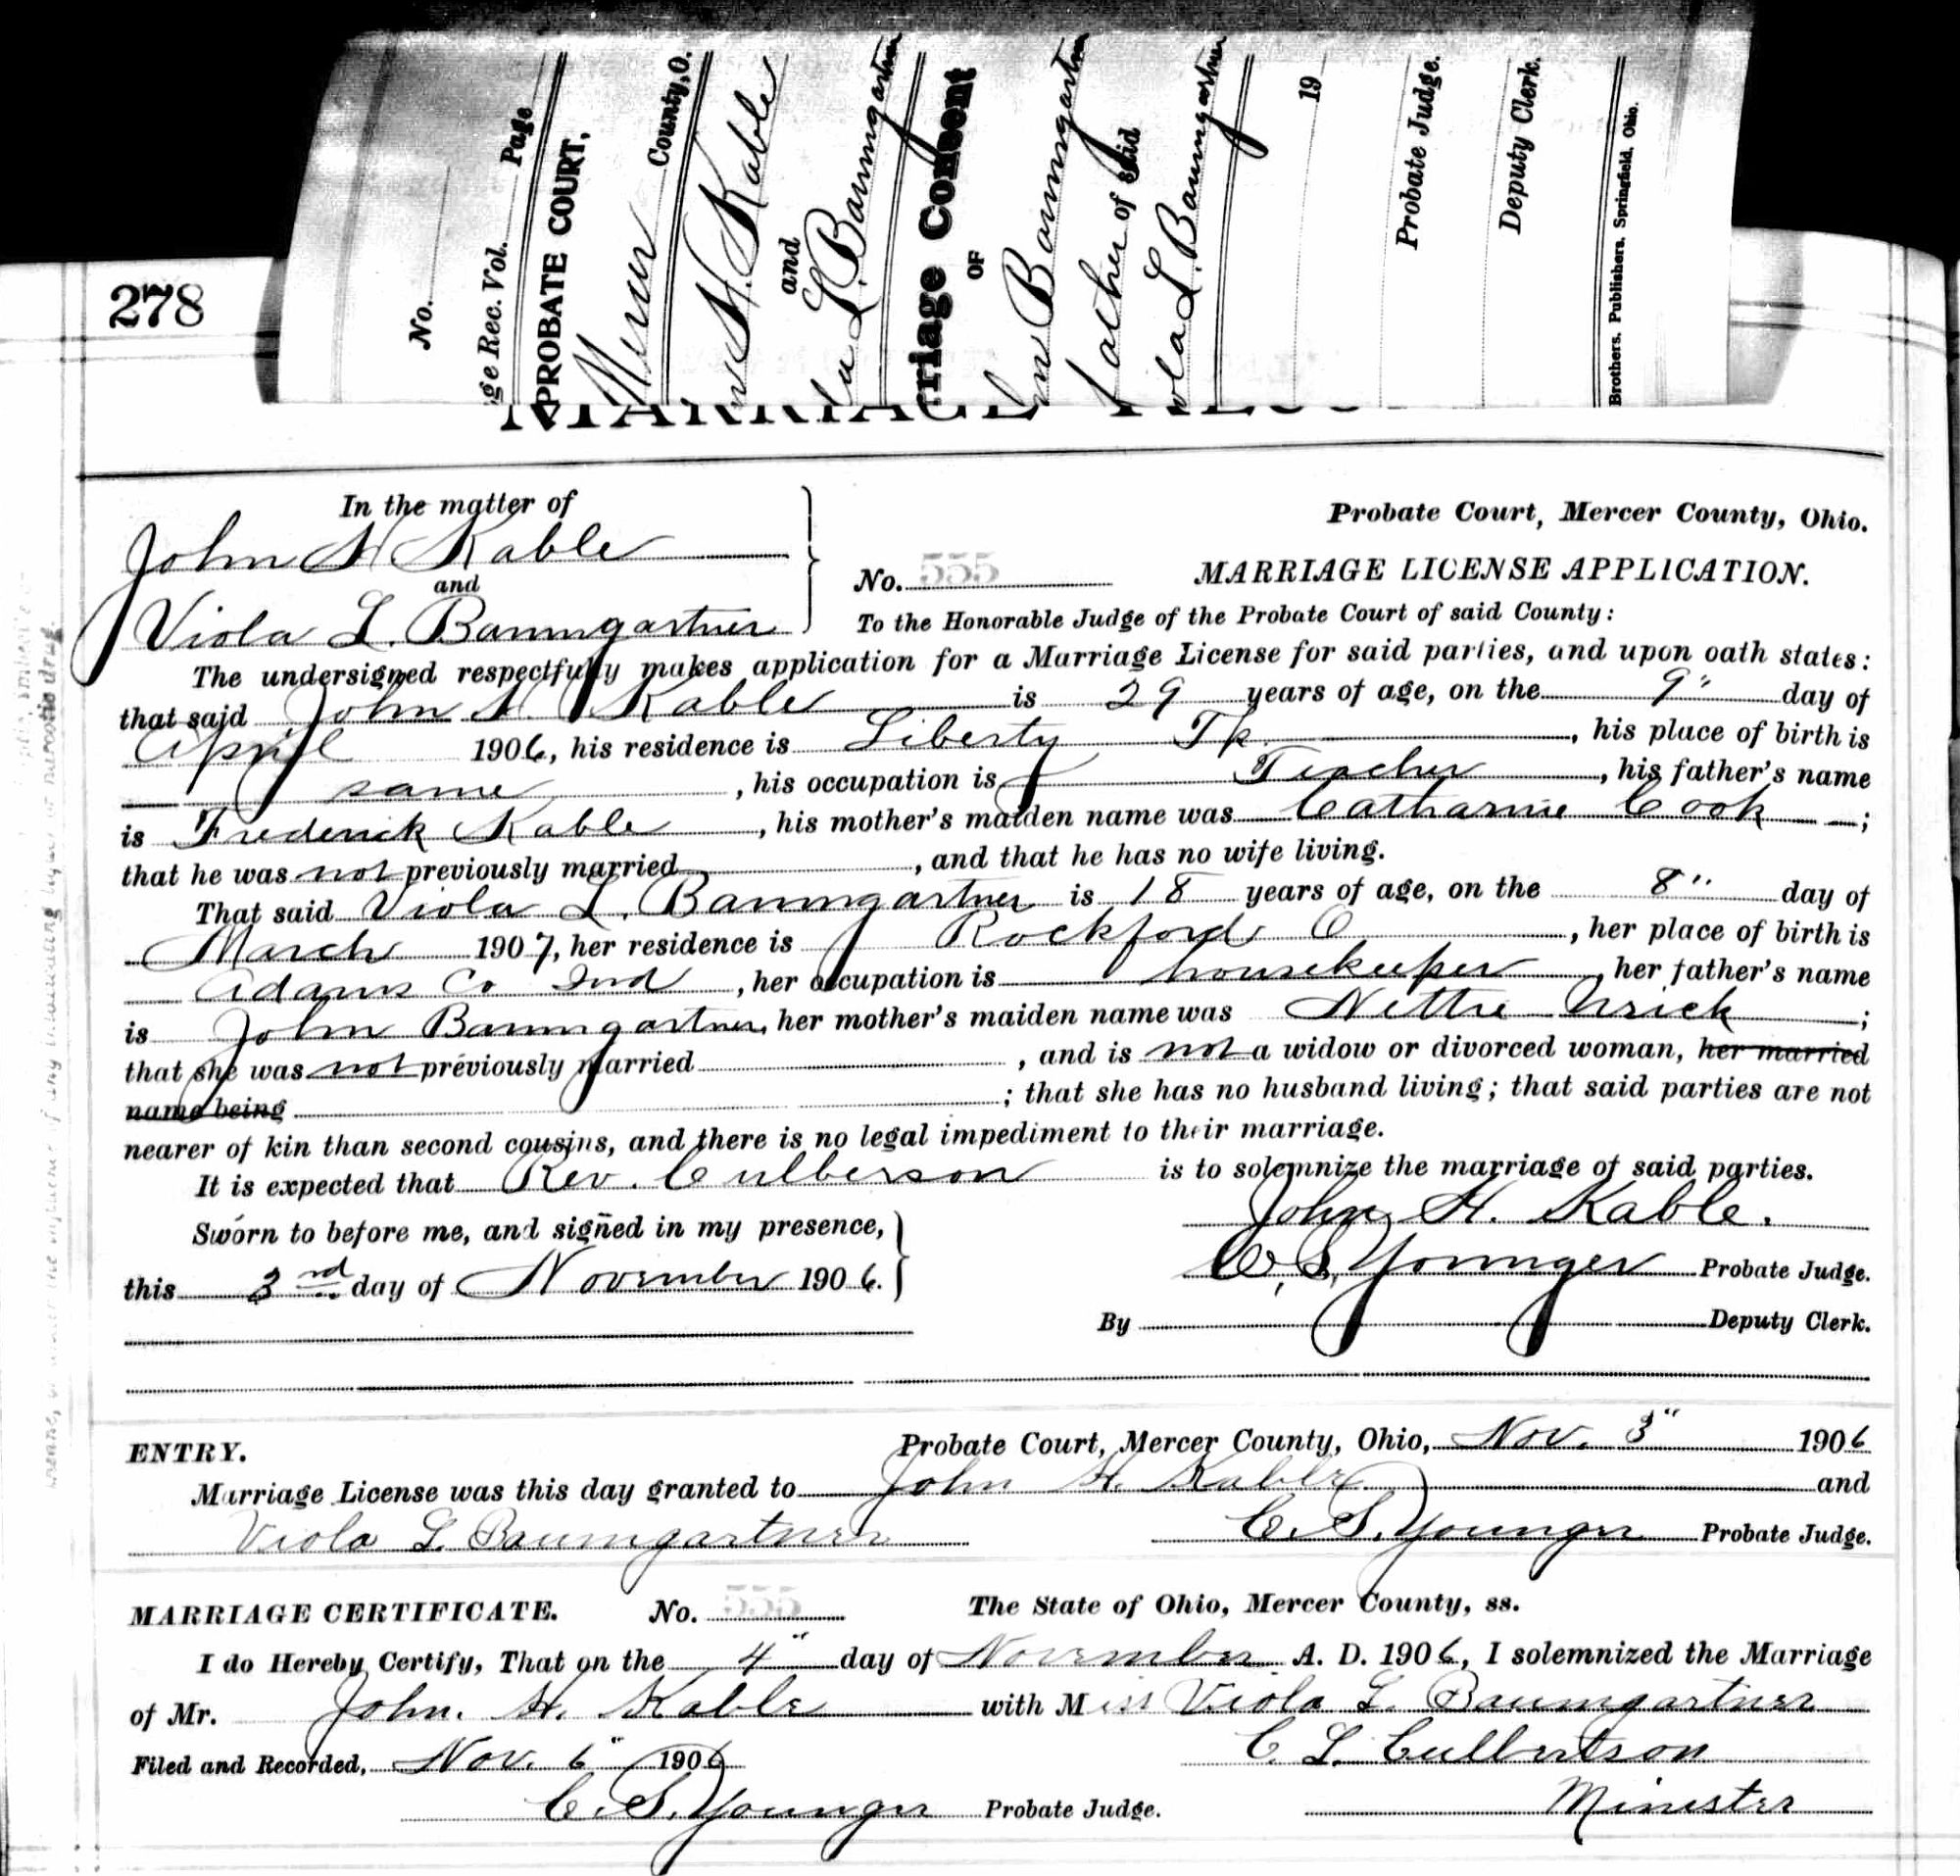 278
No.
ge Rec. Vol. Page
PROBATE COURT,
Mercer County, O.
n H. Kable
and
la L. Baumgartner
rriage Consent
OF
hn Baumgartner
father of said
iola L. Baumgartner
19
Probate Judge.
Deputy Clerk.
Brothers. Publishers. Springfield, Ohio.
In the matter of
John H Kable
and
Viola L. Baumgartner
Probate Court, Mercer County, Ohio.
No. 555 MARRIAGE LICENSE APPLICATION.
To the Honorable Judge of the Probate Court of said County:
The undersigned respectfully makes application for a Marriage License for said parties, and upon oath states:
that said John H. Kable is 29 years of age, on the 9" day of
April 1906, his residence is Liberty Tp. , his place of birth is
same , his occupation is Teacher , his father's name
is Frederick Kable , his mother's maiden name was Catharine Cook ;
that he was not previously married , and that he has no wife living.
That said Viola L. Baumgartner is 18 years of age, on the 8" day of
March 1907, her residence is Rockford O , her place of birth is
Adams Co Ind , her occupation is housekeeper , her father's name
is John Baumgartner, her mother's maiden name was Nettie Urick ;
that she was not previously married , and is not a widow or divorced woman, her married
name being ; that she has no husband living; that said parties are not
nearer of kin than second cousins, and there is no legal impediment to their marriage.
It is expected that Rev. Culberson is to solemnize the marriage of said parties.
John H. Kable.
Sworn to before me, and signed in my presence,
this 3rd day of November 1906.
C. S. Younger Probate Judge.
By Deputy Clerk.
ENTRY. Probate Court, Mercer County, Ohio, Nov. 3" 1906
Marriage License was this day granted to John H. Kable and
Viola L. Baumgartner C. S. Younger Probate Judge.
MARRIAGE CERTIFICATE. No. 555 The State of Ohio, Mercer County, ss.
I do Hereby Certify, That on the 4" day of November A. D. 1906, I solemnized the Marriage
of Mr. John. H. Kable with Miss Viola L. Baumgartner
C L Culbertson
Filed and Recorded, Nov. 6" 1906
C. S. Younger Probate Judge. Minister